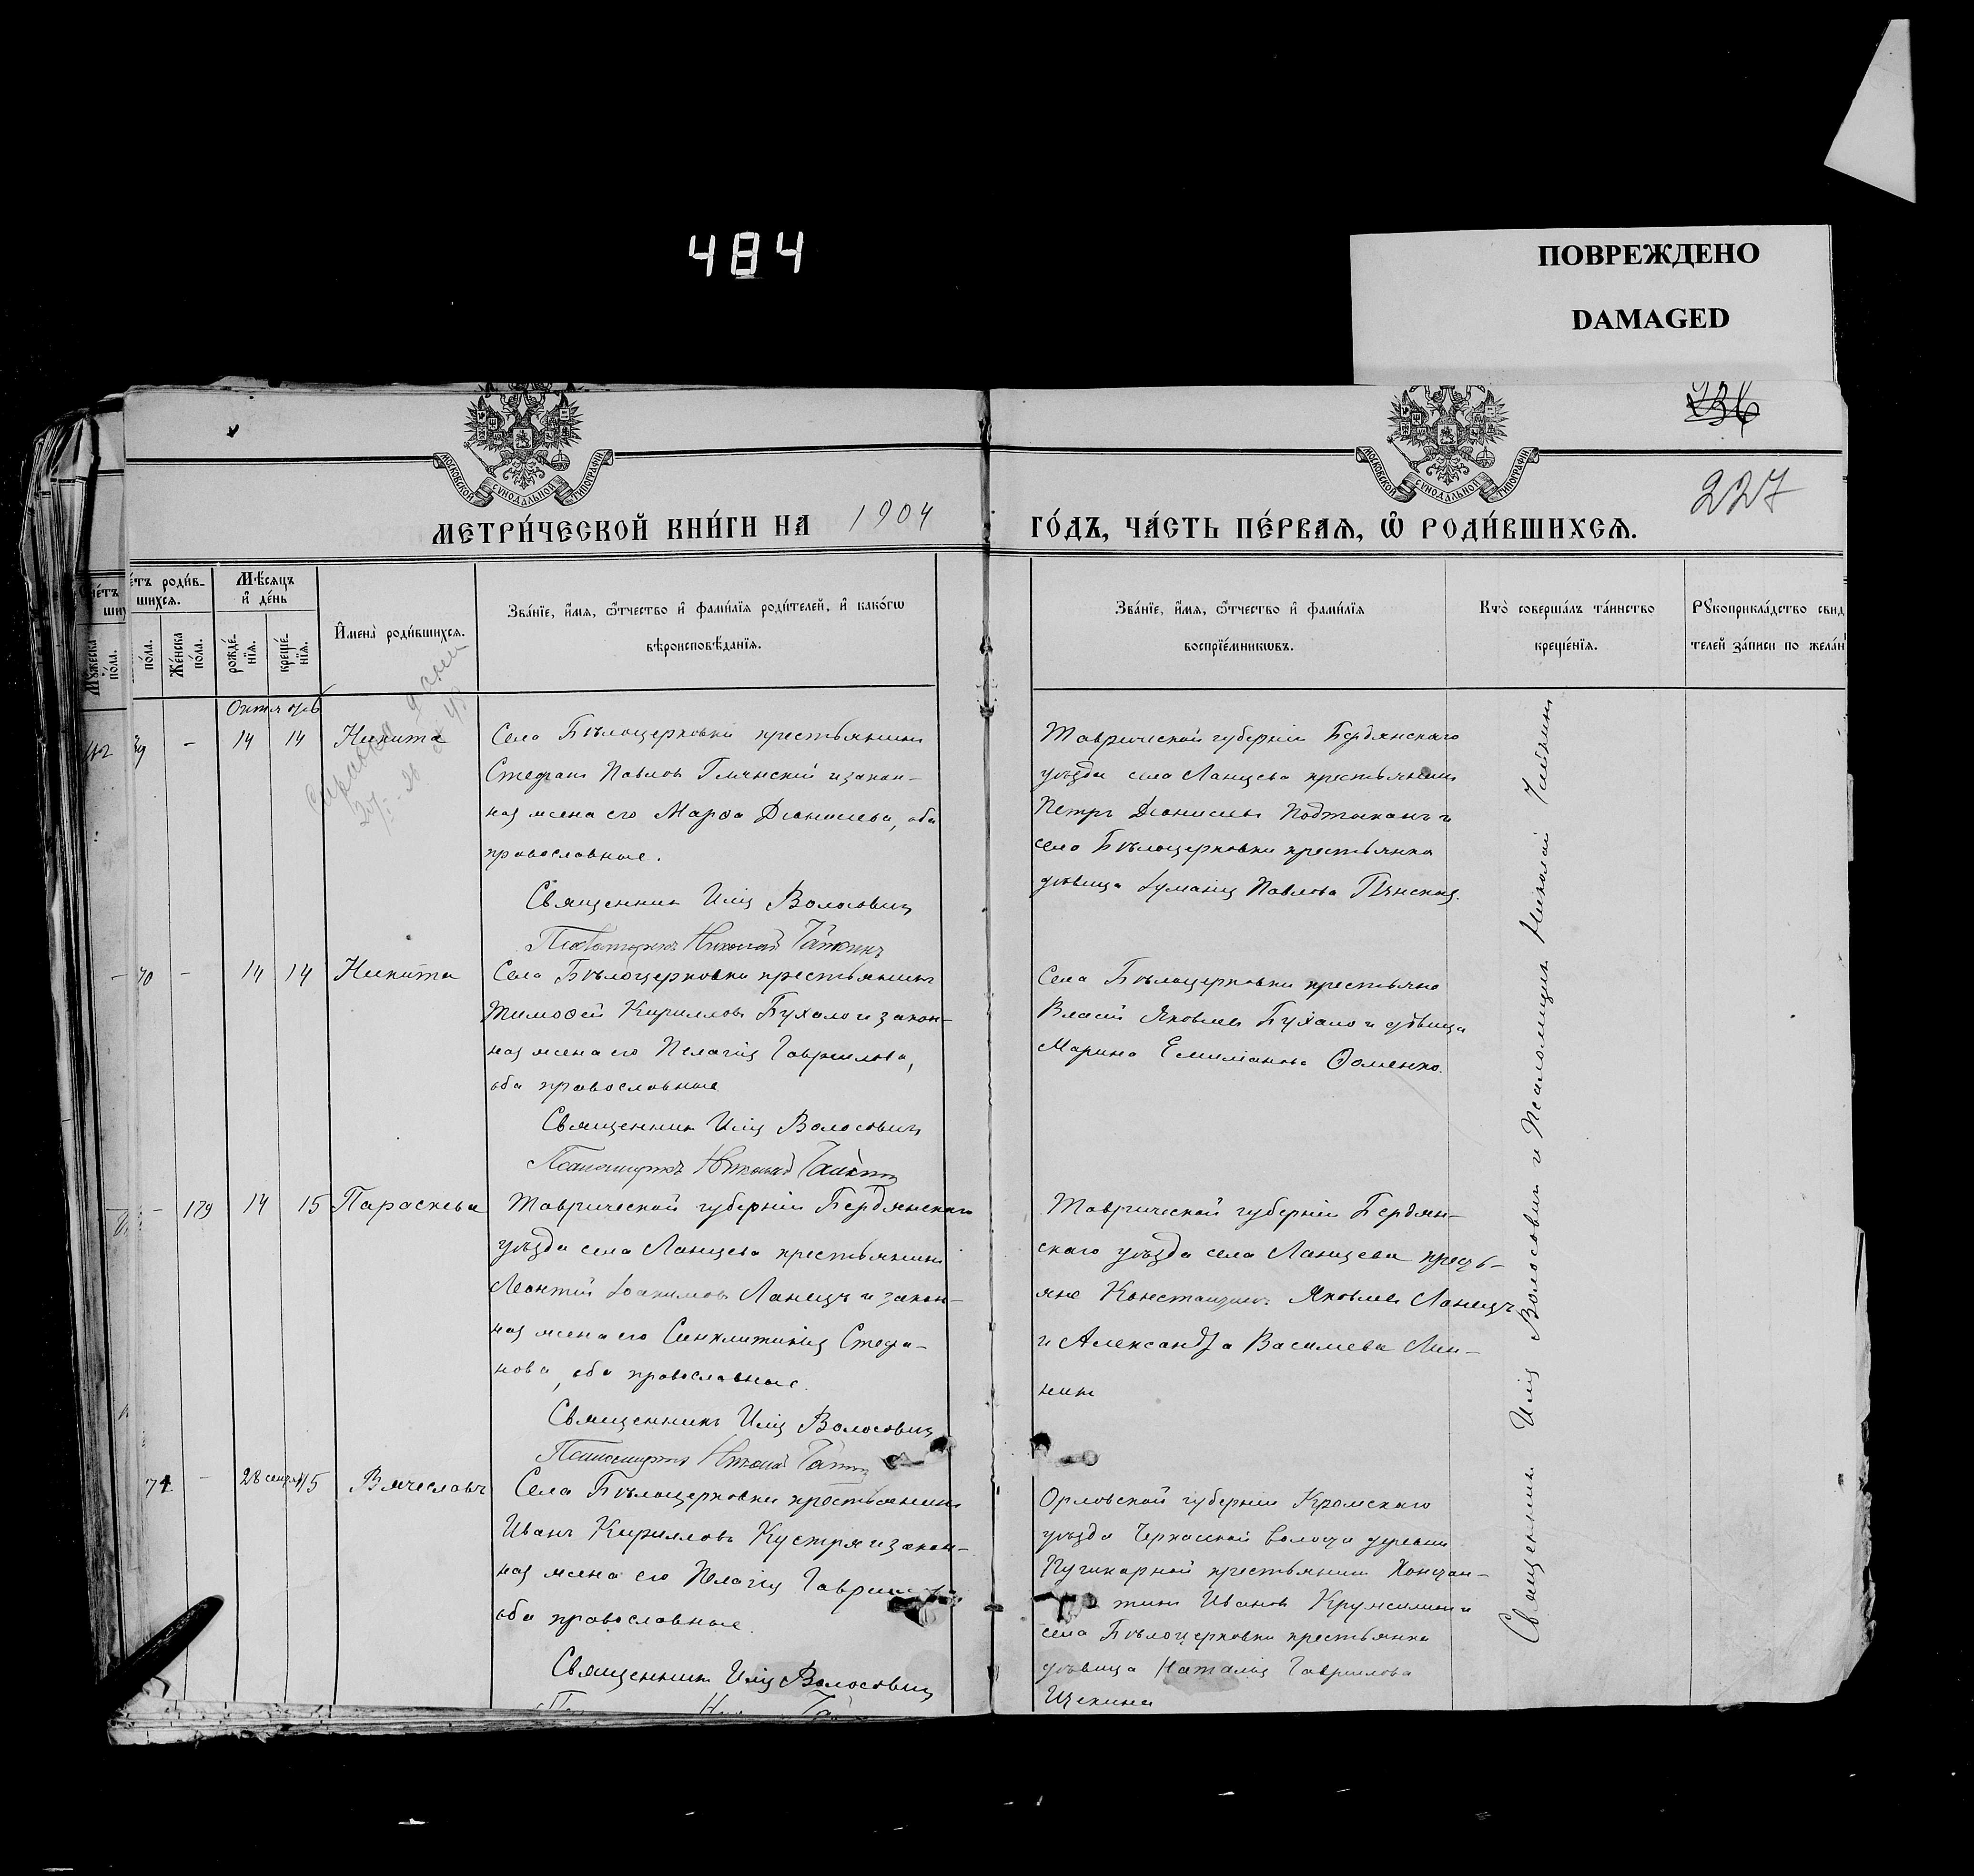 484
ПОВРЕЖДЕНО
DAMAGED
236
227
МОСКОВСКОЙ СѴНОДАЛЬНОЙ ТИПОГРАФІИ
МОСКОВСКОЙ СѴНОДАЛЬНОЙ ТИПОГРАФІИ
МЕТРИ́ЧЕСКОЙ КНИ́ГИ НА 1904
ГО́ДЪ, ЧА́СТЬ ПЕ́РВАѦ, Ѽ РОДИ́ВШИХСѦ.
е́тъ роди́в-
шихся.
пола.
Же́нска
по́ла.
Мѣ́сяцъ
и҆ де́нь
рожде́-
нїя.
креще́-
нїя.
И҆мена̀ роди́вшихся.
Зва́нїе, и҆́мя, ѻ҆́тчество и҆ фами́лїя роди́телей, и҆ како́гѡ
вѣроисповѣ́данїя.
Зва́нїе, и҆́мя, ѻ҆́тчество и҆ фами́лїя
воспрїе́мникѡвъ.
Кто̀ соверша́лъ та́инство
креще́нїя.
Рꙋкоприкла́дство свид
телей за́писи по жела́н
Октябрь
39 - 14 14 Никита
Села Бѣлоцерковки крестьянинъ
Стефанъ Павловъ Глянскій и закон-
ная жена его Марѳа Діонисіева, оба
православные.
Священникъ Илія Волосовичъ
Псаломщикъ Николай
Таврической губерніи Бердянскаго
уѣзда села Ланцева крестьянинъ
Петръ Діонисіевъ Подтыканъ и
села Бѣлоцерковки крестьянка
дѣвица Павлова
70 - 14 14 Никита
Села Бѣлоцерковки крестьянинъ
Тимофей Кирилловъ Бухало и закон-
ная жена его Пелагія Гавриилова,
оба православные
Священникъ Илія Волосовичъ
Псаломщикъ Николай
Села Бѣлоцерковки крестьяне
Власій Яковлевъ Бухало и дѣвица
Марина Емиліанова Ѳоменко.
- 179 14 15 Параскева
Таврической губерніи Бердянскаго
уѣзда села Ланцева крестьянинъ
Леонтій Іоакимовъ Ланецъ и закон-
ная жена его Синклитикія Стефа-
нова, оба православные.
Священникъ Илія Волосовичъ
Псаломщикъ Николай
Таврической губерніи Бердян-
скаго уѣзда села Ланцева кресть-
яне Константинъ Яковлевъ Ланецъ
и Александра Васильева Лин-
никъ
71 - 28 сентяб 15 Вячеславъ
Села Бѣлоцерковки крестьянинъ
Иванъ Кирилловъ Кустря и закон-
ная жена его Пелагія Гавриил
оба православные.
Священникъ Илія Волосовичъ
Орловской губерніи Кромскаго
уѣзда волости деревни
крестьянинъ Констан-
тинъ Ивановъ и
села Бѣлоцерковки крестьянка
дѣвица Наталія Гавриилова
Щекина
Священникъ Илія Волосовичъ и Псаломщикъ Николай